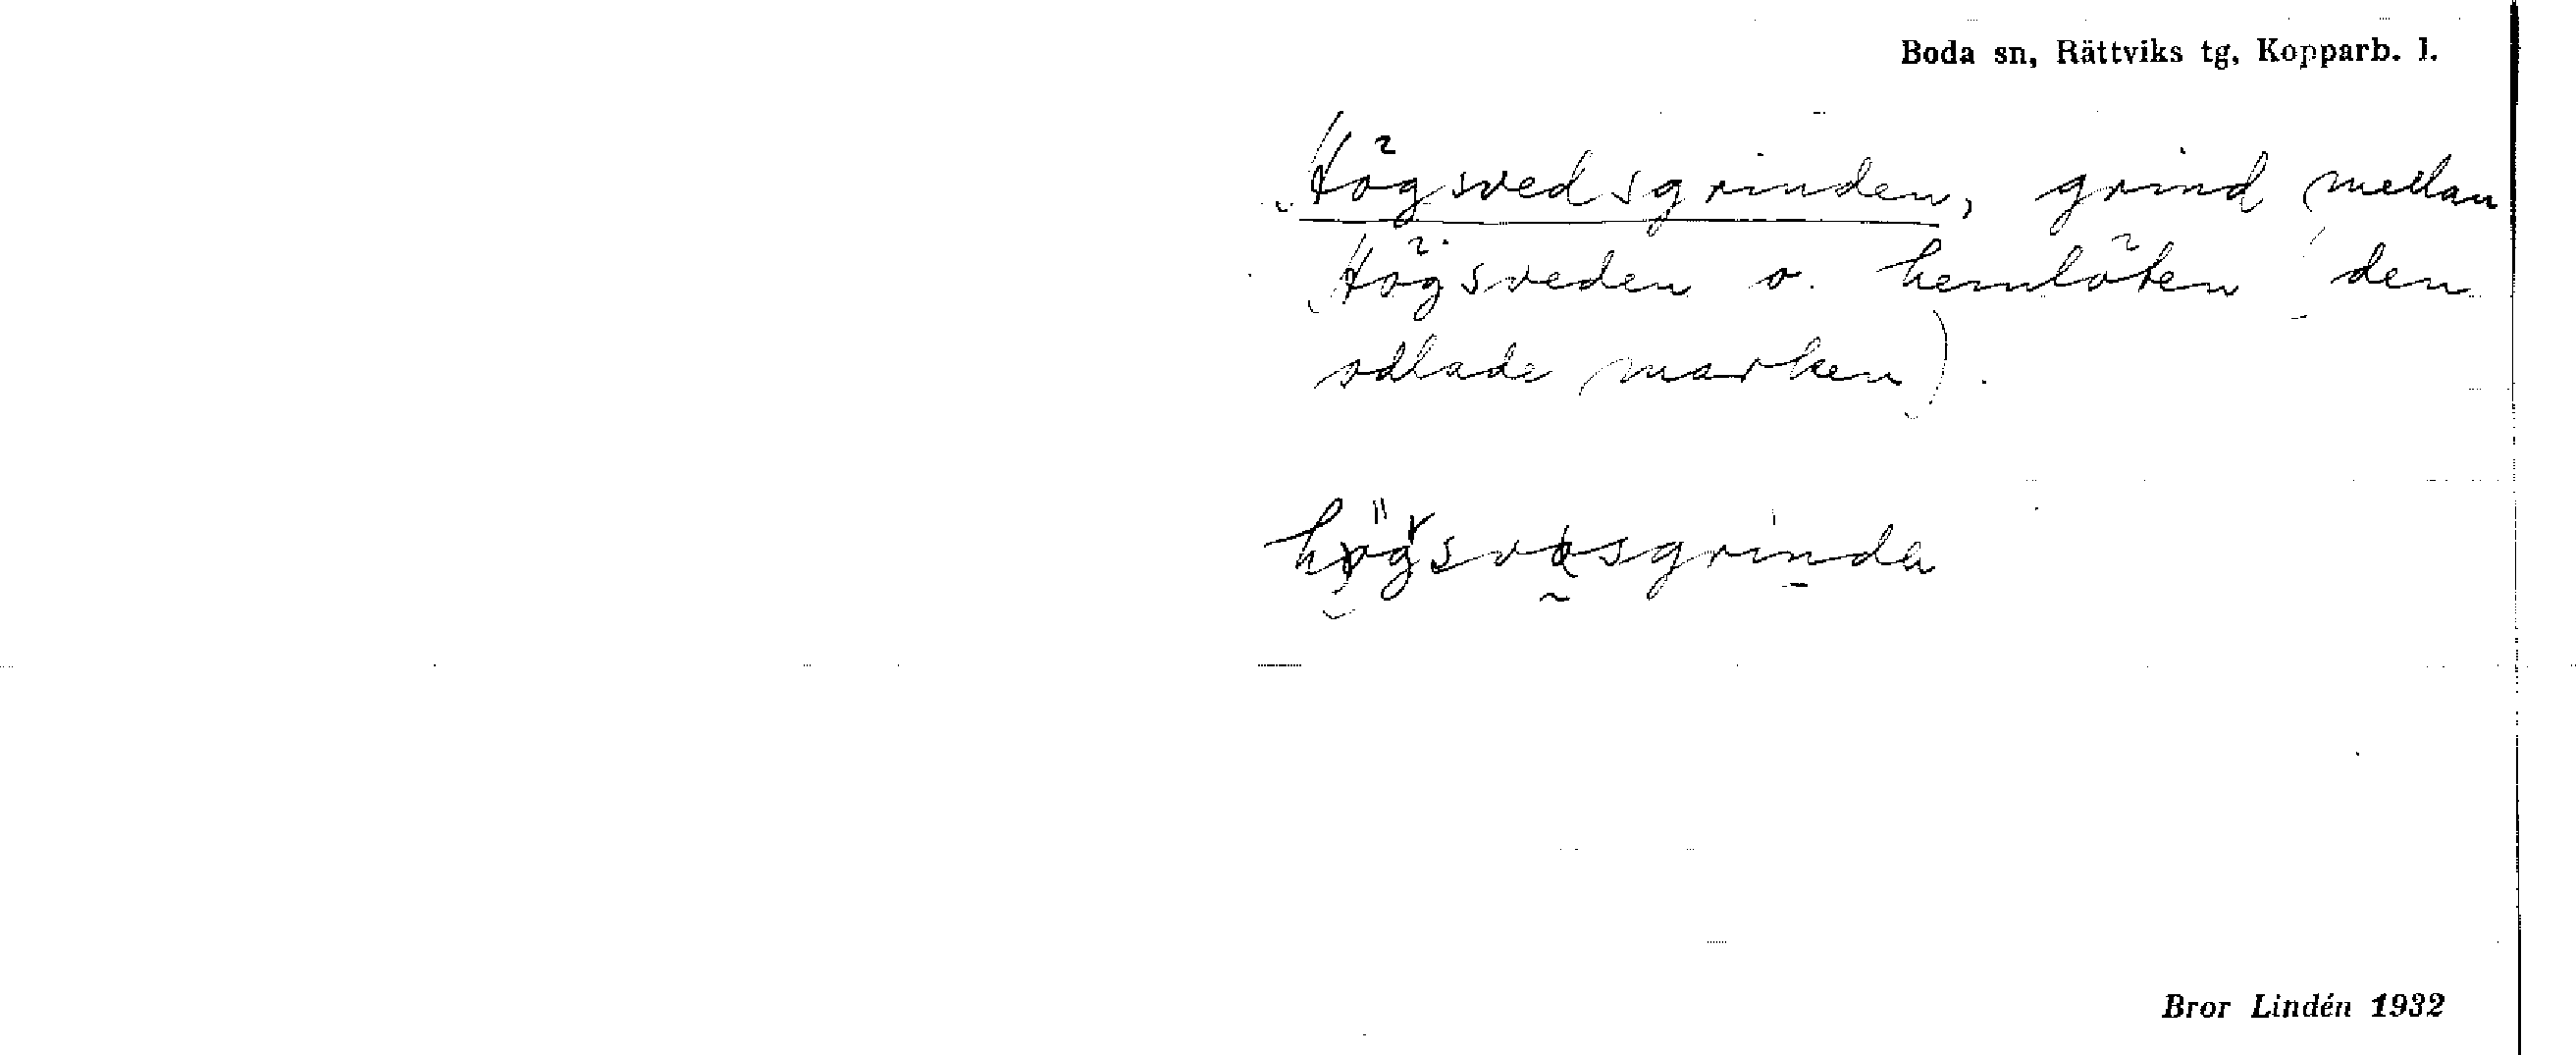 Boda sn, Rättviks tg, Kopparb. l.
Högsvedsgrinden, grind mellan
Högsveden o. hemlöten (den
odlade marken).
Bror Lindén 1932